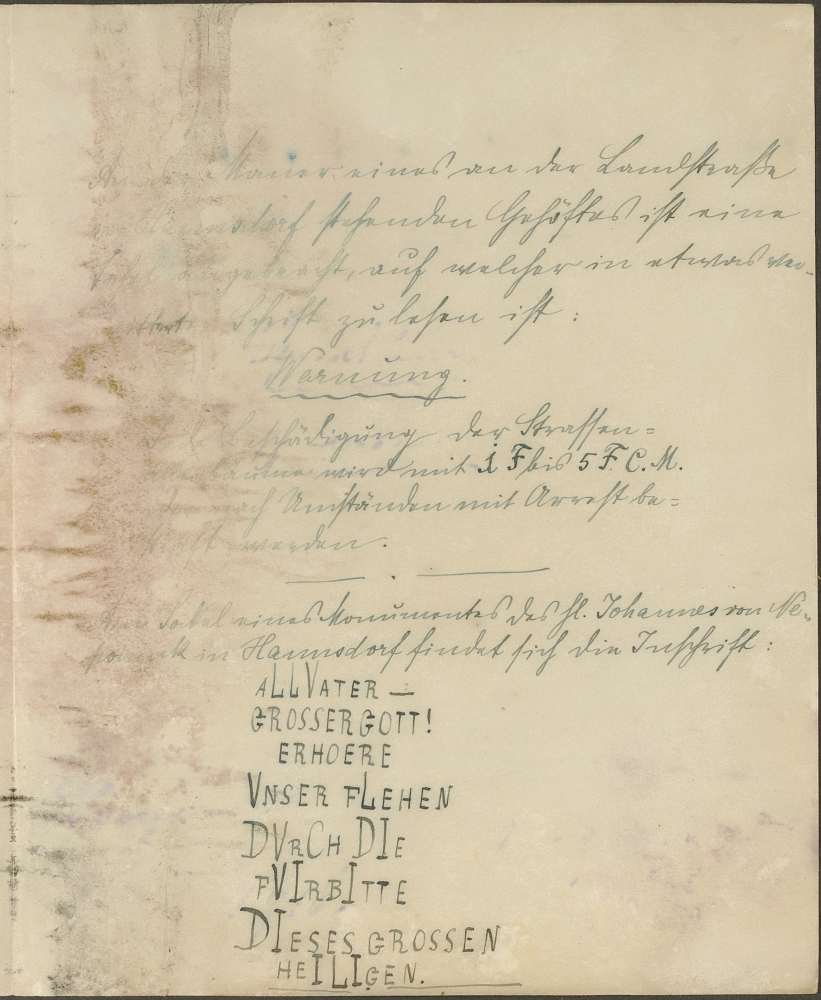 An der Mauer eines an der Landstraße
in Hannsdorf stehenden Gehöftes ist eine
Tafel angebracht, auf welcher in etwas ver-
witterter Schrift zu lesen ist:
Warnung.
Beschädigung der Strassen=
bäume wird mit 1 F bis 5 F. C. M.
oder nach Umständen mit Arrest be=
straft werden.
Am Sockel eines Monumentes des hl. Johannes von Ne-
pomuk in Hannsdorf findet sich die Inschrift:
ALLVATER —
GROSSER GOTT!
ERHOERE
VNSER FLEHEN
DVRCH DIE
FVIRBITTE
DIESES GROSSEN
HEILIGEN.